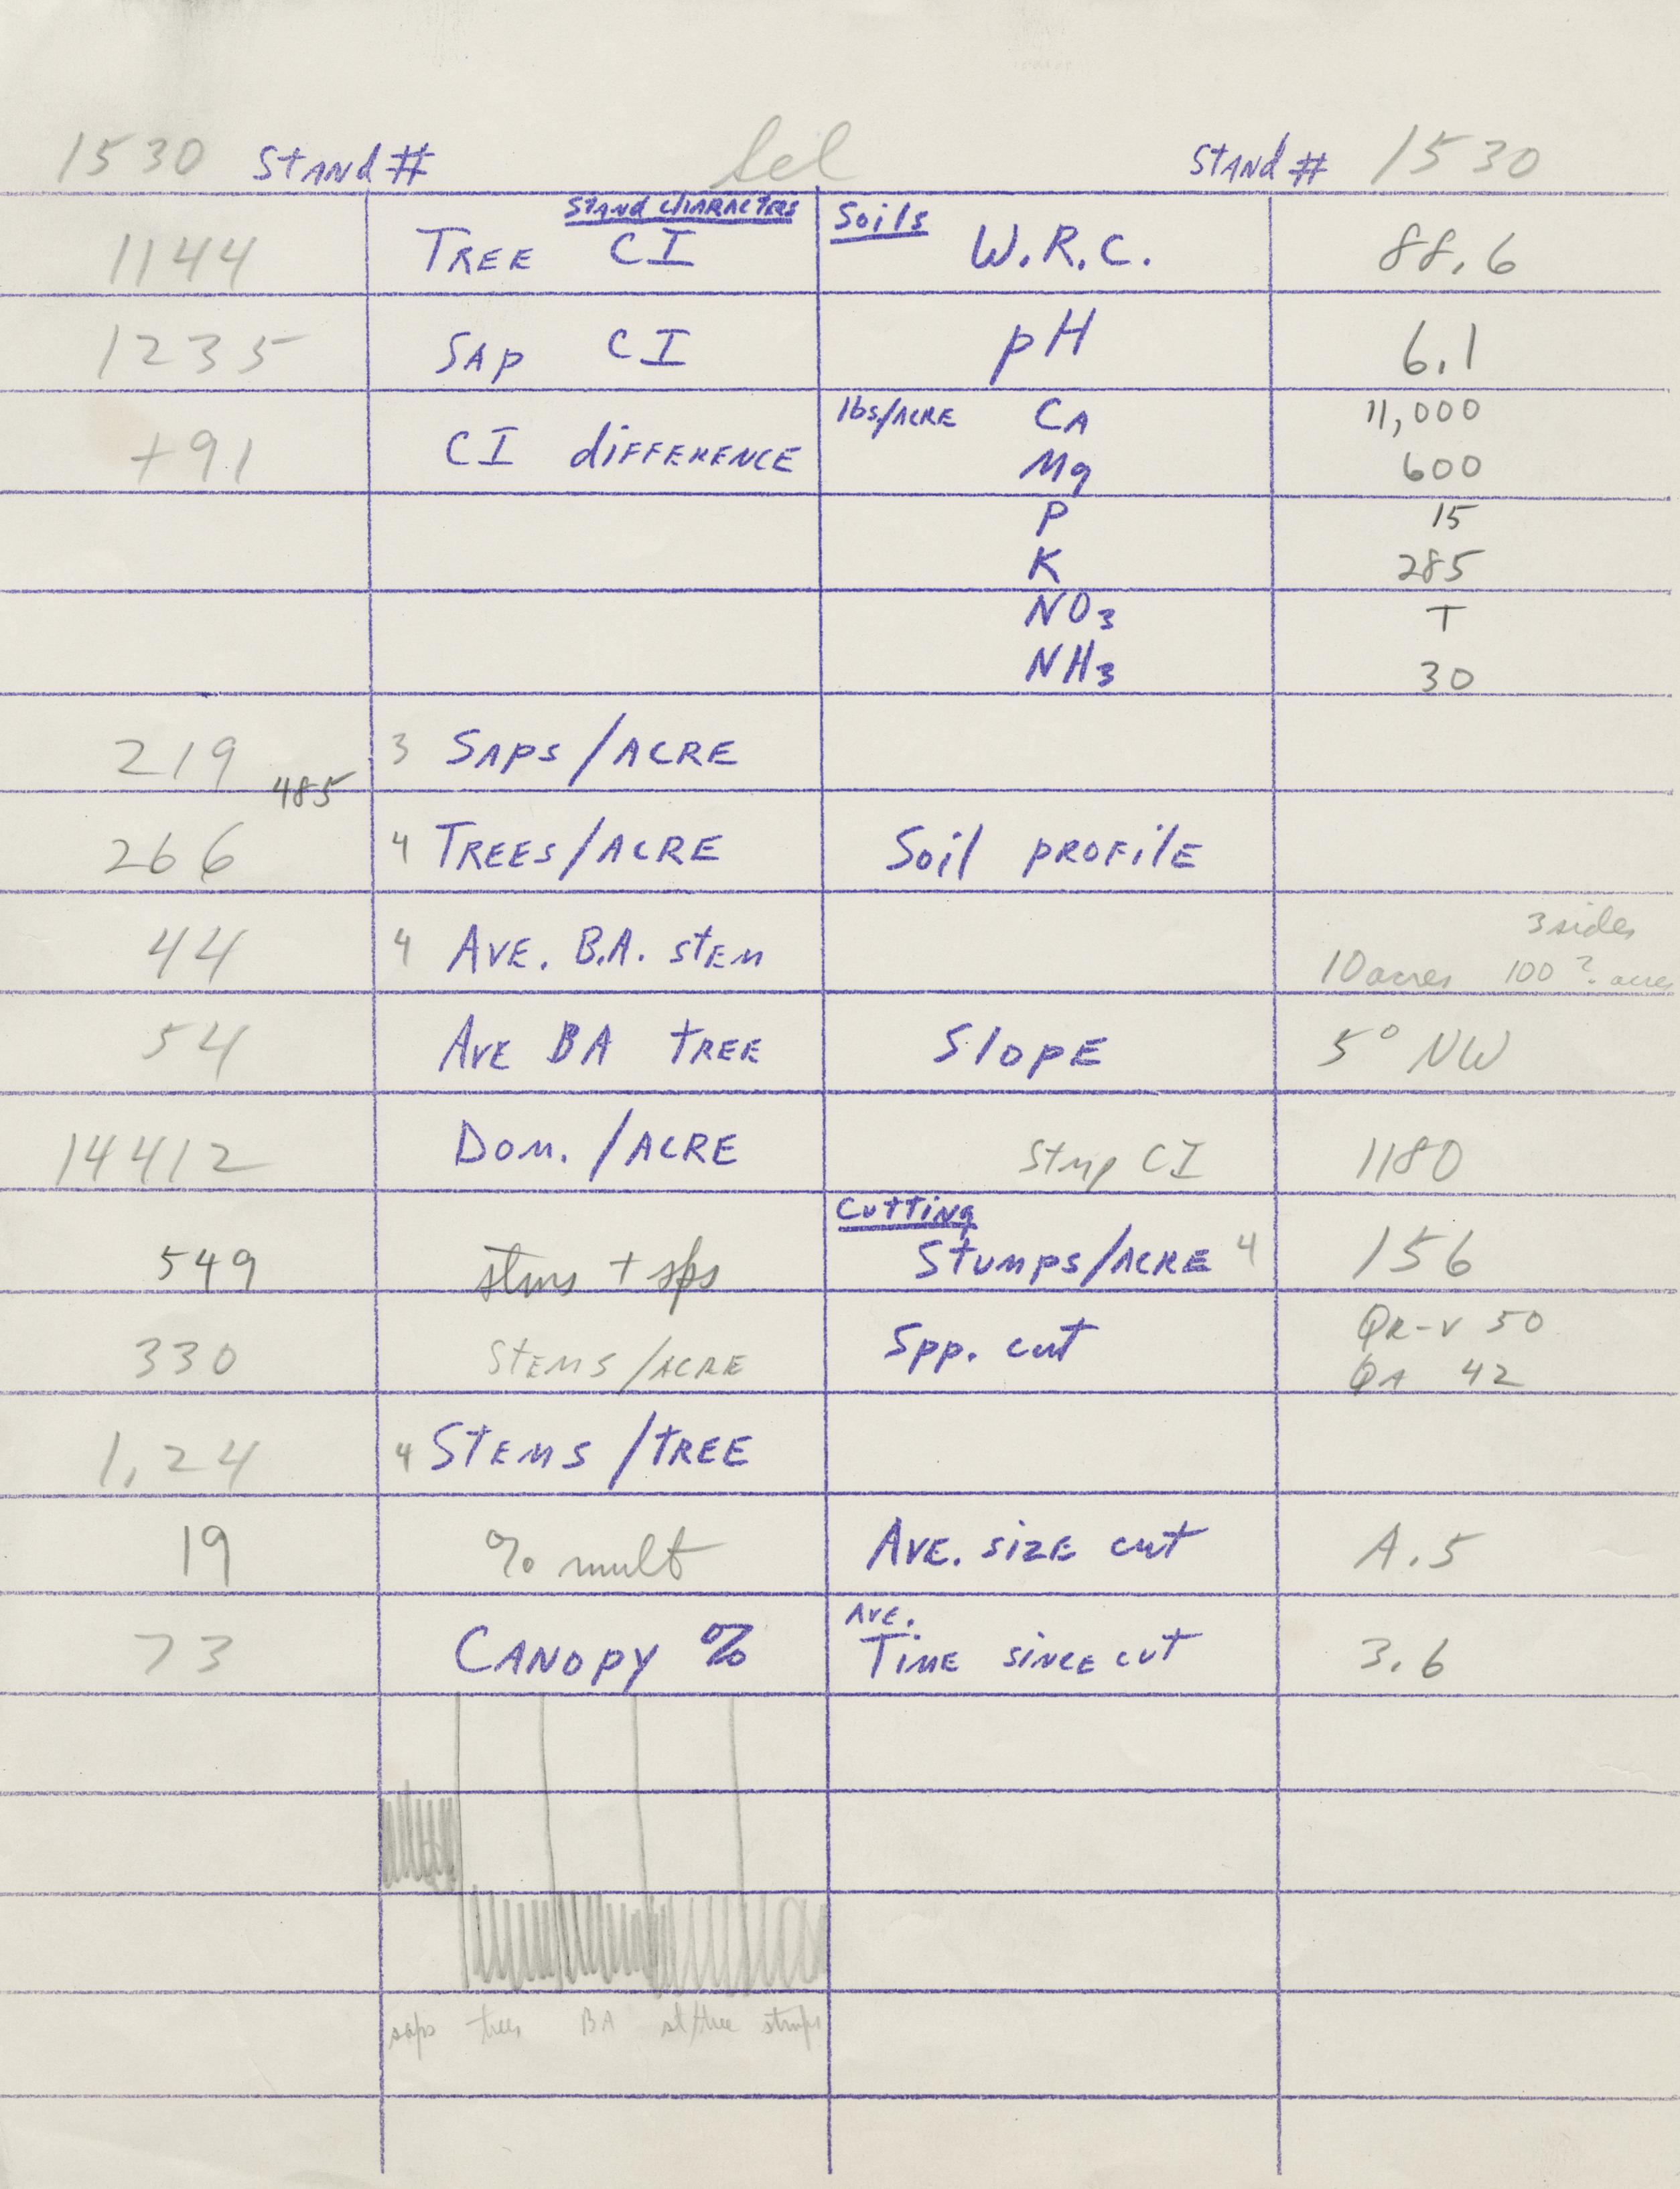 1530 Stand # Sel Stand # 1530
Stand Characters Soils
1144 Tree CI W.R.C. 88.6
1235 Sap CI pH 6.1
+91 CI difference lbs/Acre Ca 11,000
Mg 600
P 15
K 285
NO3 T
NH3 30
219 3 Saps/Acre
485
266 4 Trees/Acre Soil profile
3 sides
44 4 Ave. B.A. stem 10 acres 100 ? acres
54 Ave BA tree Slope 5° NW
14412 Dom. /Acre Stmp CI 1180
Cutting
549 stms + sps Stumps/Acre 4 156
330 Stems/Acre Spp. cut QR-V 50
QA 42
1.24 4 Stems/tree
19 % mult Ave. size cut A.5
73 Canopy % Ave. Time since cut 3.6
saps trees BA st/tree stmps